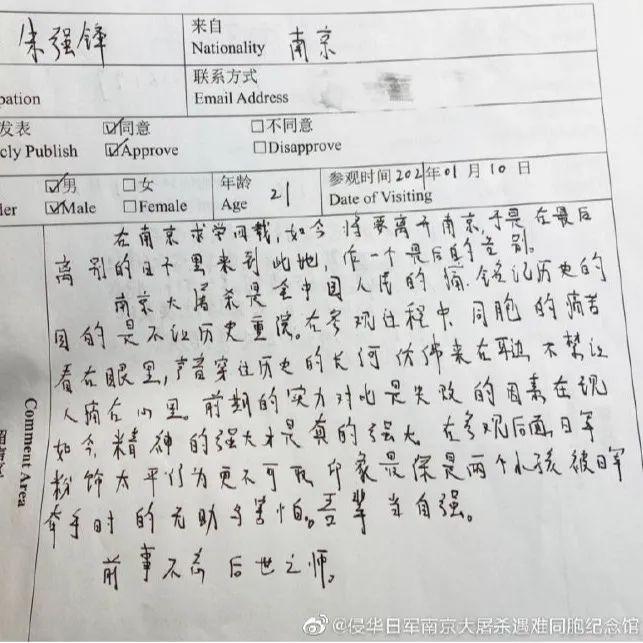 朱强锋
来自
Nationality 南京
联系方式
pation Email Address
发表 ☑同意 □不同意
cly Publish ☑Approve □Disapprove
☑男 □女 年龄 21 参观时间 2021年01月10日
der ☑Male □Female Age Date of Visiting
在南京求学四载,如今将要离开南京,于是在最后
离别的日子里来到此地,作一个最后的告别。
南京大屠杀是全中国人民的痛.铭记历史的
目的是不让历史重演。在参观过程中,同胞的痛苦
看在眼里,声音穿过历史的长河仿佛来在耳边,不禁让
人痛在心里。前期的实力对比是失败的因素在现
如今,精神的强大才是真的强大。在参观后面,日军
粉饰太平行为更不可取,印象最深是两个小孩被日军
牵手时的无助与害怕。吾辈当自强。
前事不忘后世之师。
Comment Area
@侵华日军南京大屠杀遇难同胞纪念馆